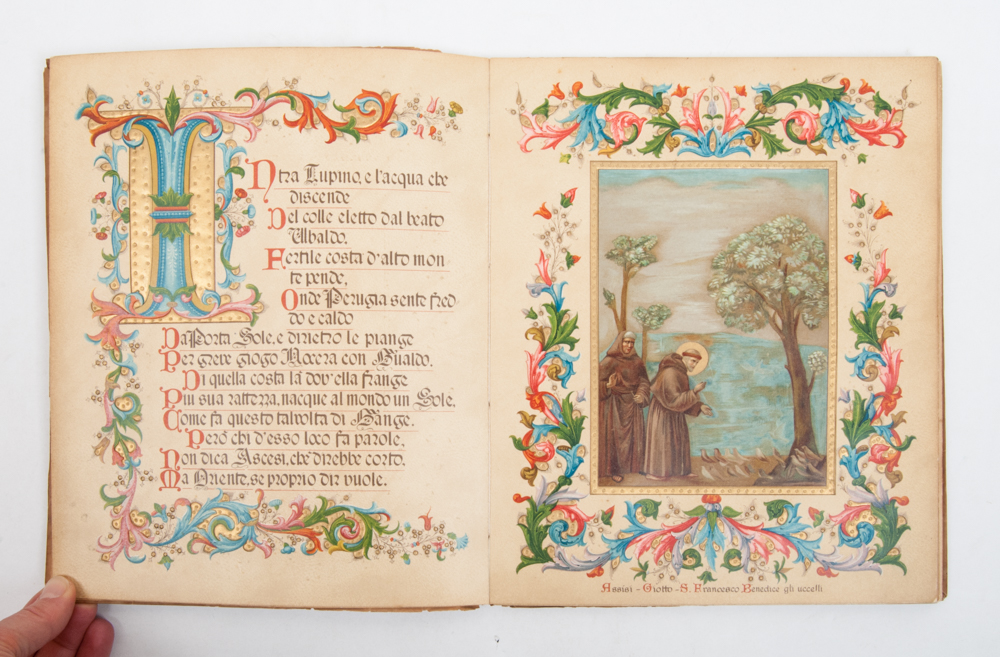 Intra Tupino, e l'acqua che
discende
Del colle eletto dal beato
Ubaldo.
Fertile costa d'alto mon-
te pende,
Onde Perugia sente fred-
do e caldo
Da Porta Sole, e dirietro le piange
Per greve giogo Nocera con Gualdo.
Di quella costa là dov'ella frange
Piu sua rattezza, nacque al mondo un Sole,
Come fa questo talvolta di Gange.
Però chi d'esso loco fa parole,
Non dica Ascesi, chè direbbe corto,
Ma Oriente, se proprio dir vuole.
Assisi - Giotto - S. Francesco Benedice gli uccelli